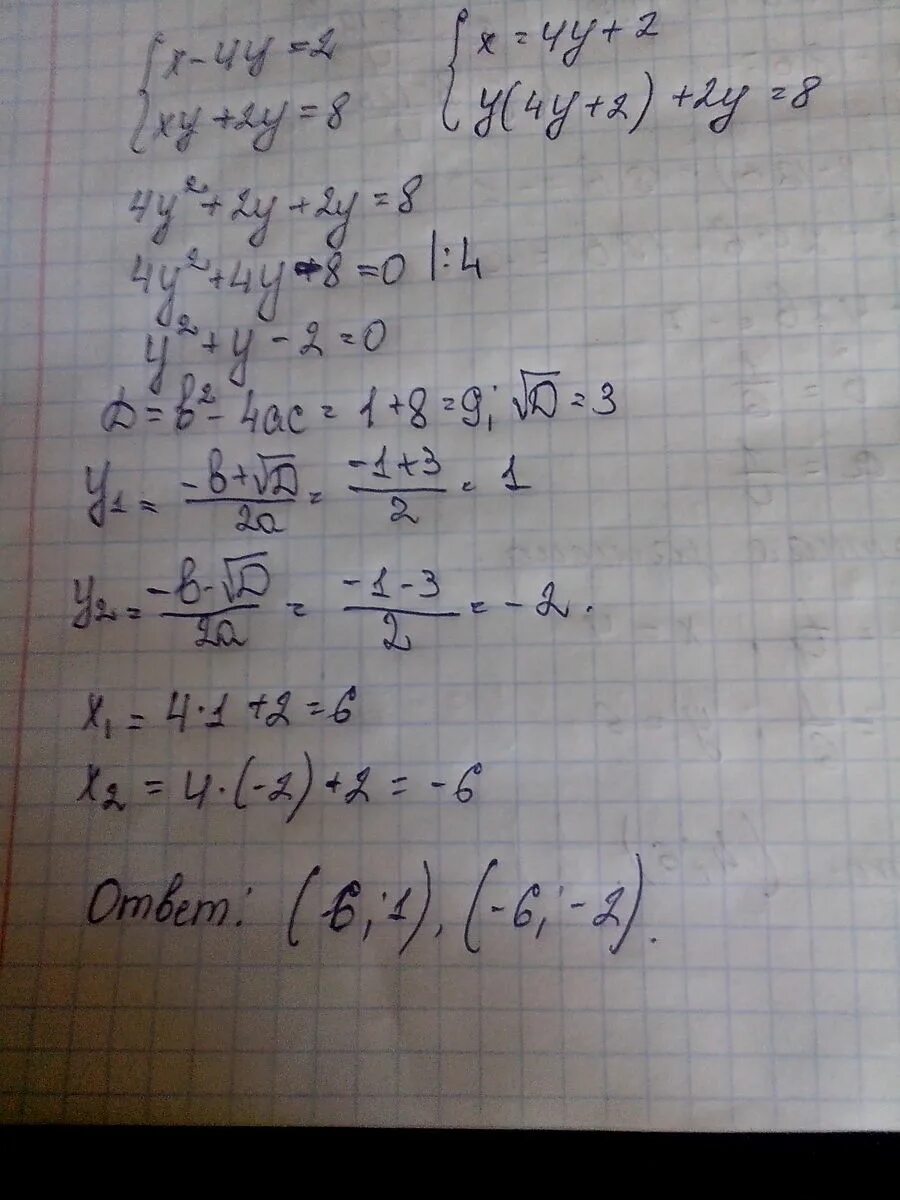 {x - 4y = 2
{xy + 2y = 8
{x = 4y + 2
{y(4y + 2) + 2y = 8
4y² + 2y + 2y = 8
4y² + 4y - 8 = 0 |:4
y² + y - 2 = 0
D = b² - 4ac = 1 + 8 = 9; √D = 3
y₁ = (-b + √D)/2a = (-1 + 3)/2 = 1
y₂ = (-b - √D)/2a = (-1 - 3)/2 = -2.
x₁ = 4·1 + 2 = 6
x₂ = 4·(-2) + 2 = -6
Ответ: (6; 1), (-6; -2).